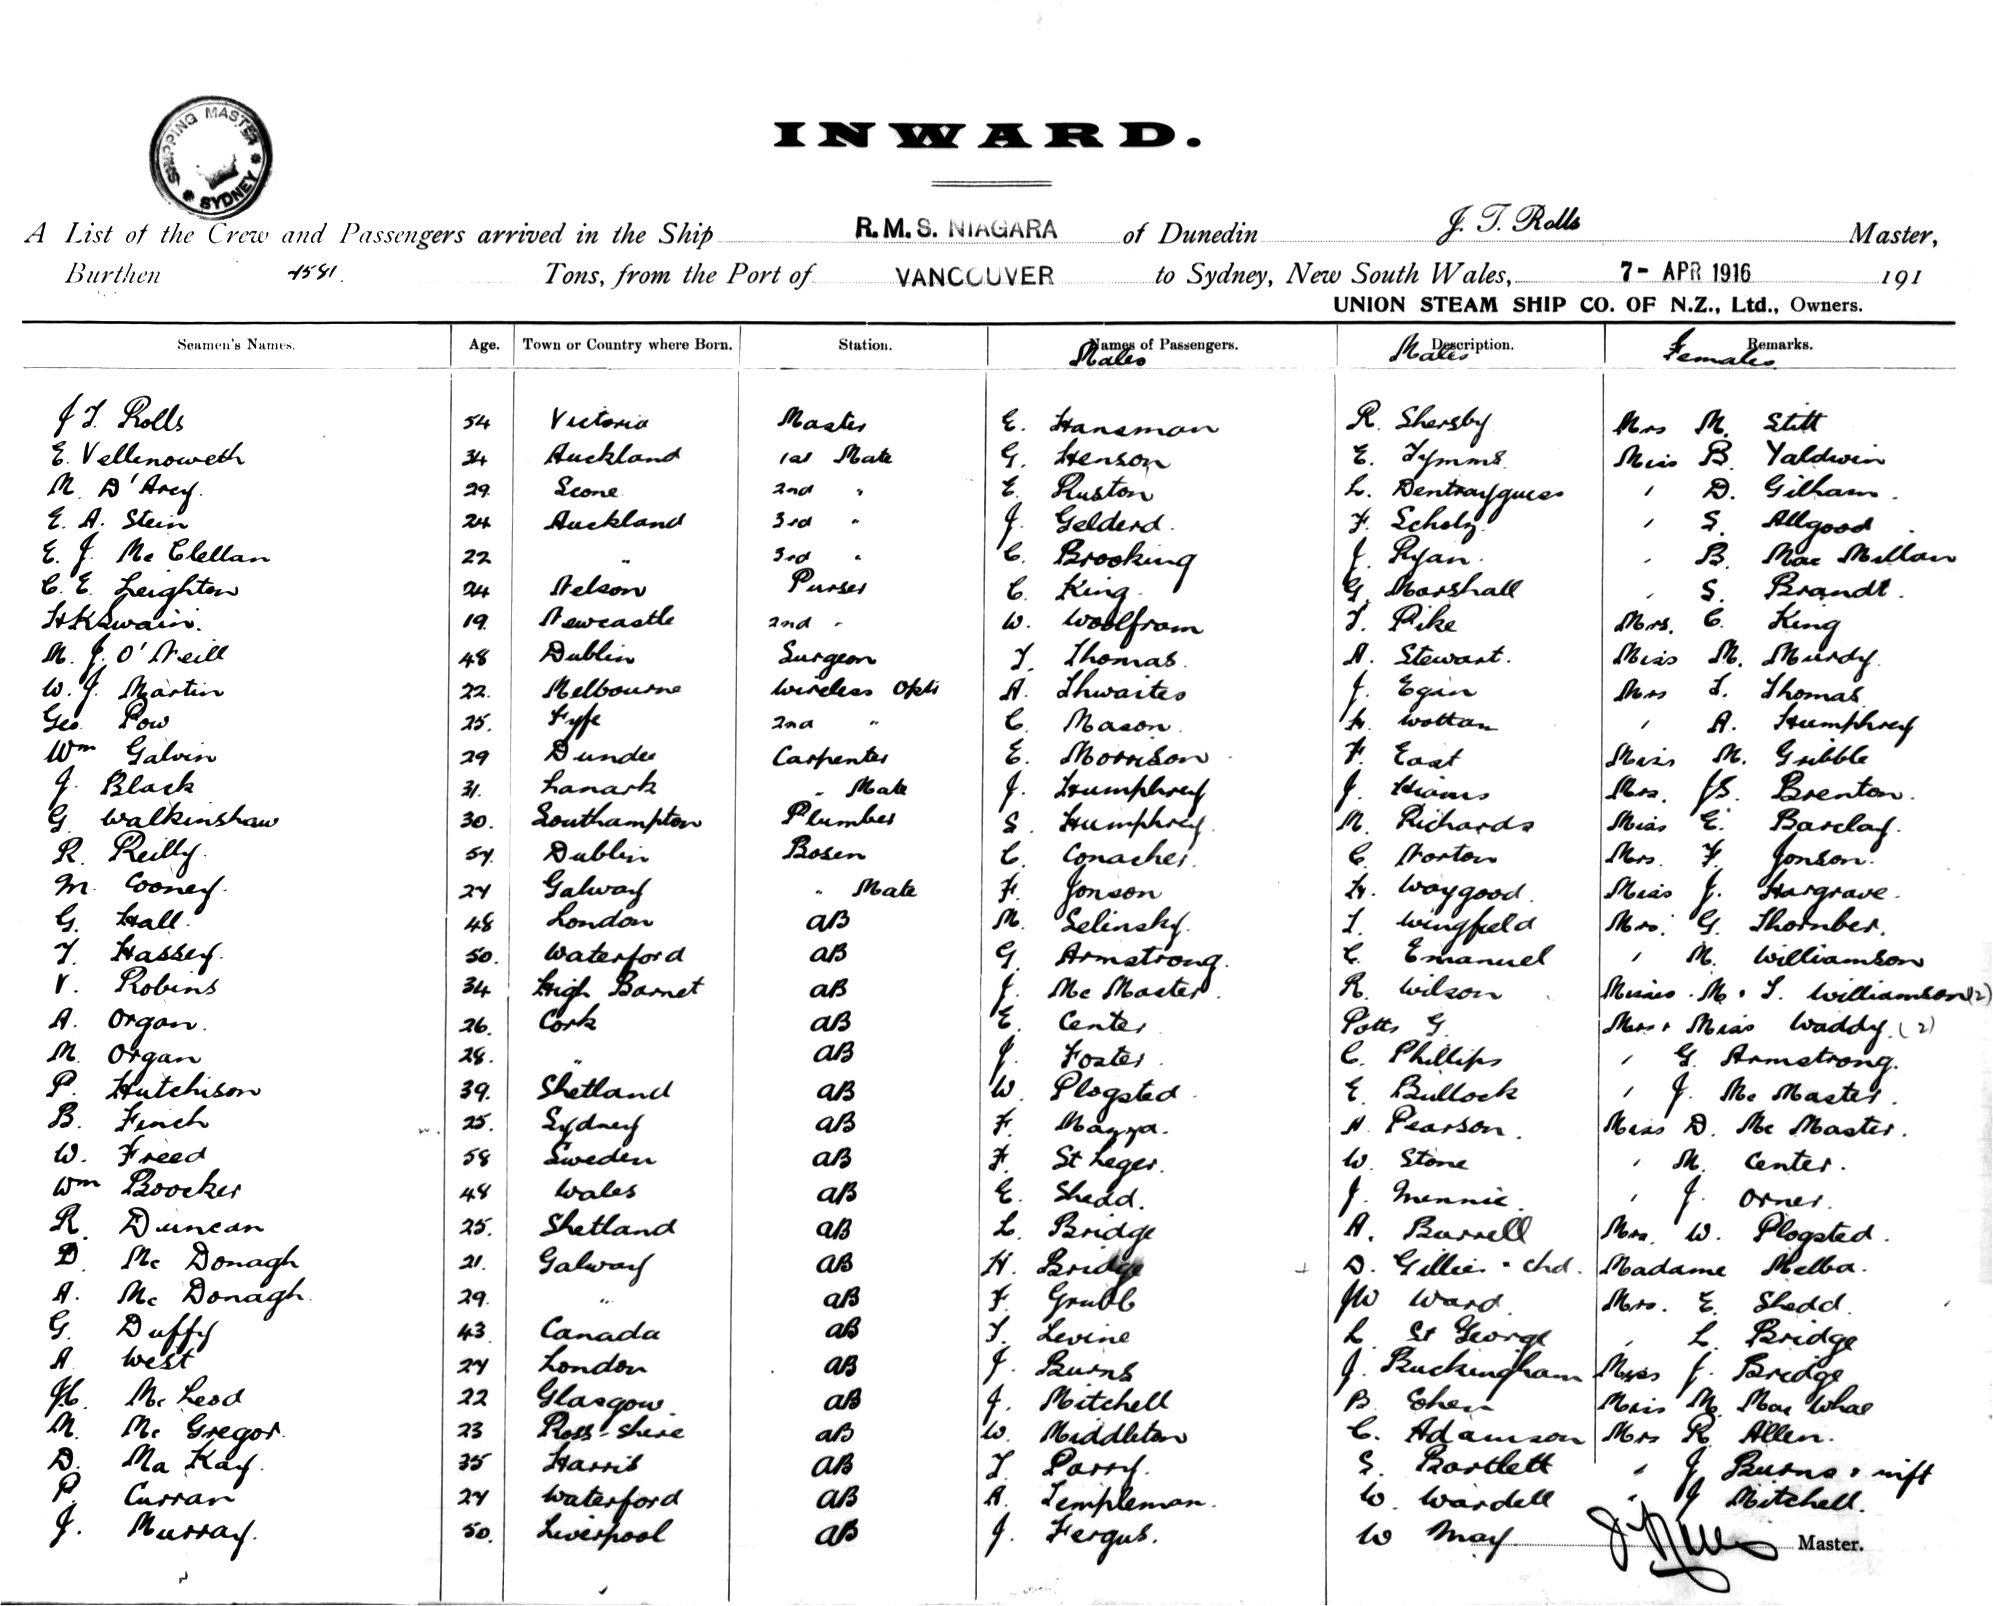 SHIPPING MASTER * SYDNEY *
INWARD.
A List of the Crew and Passengers arrived in the Ship R.M.S. NIAGARA of Dunedin J. T. Rolls Master,
Burthen 7581. Tons, from the Port of VANCOUVER to Sydney, New South Wales, 7- APR 1916 191
UNION STEAM SHIP CO. OF N.Z., Ltd., Owners.
Seamen's Names. Age. Town or Country where Born. Station. Names of Passengers. Description. Remarks.
Males Males Females
J T. Rolls 54 Victoria Master E. Hansman R. Shersby Mrs M. Stitt
E. Vellenoweth 34 Auckland 1st Mate G. Henson E. Tymms. Miss B. Yaldwin
M. D'Arcy. 29. Scone 2nd " E. Ruston L. Dentraygues " D. Gilham.
E. A. Stein 24 Auckland 3rd " J. Gelderd. F. Scholz. " S. Allgood
E. J. Mc Clellan 22 " 3rd " C. Brooking J. Ryan. " B. Mac Millan
C. E. Leighton 24 Nelson Purser C. King. G. Marshall " S. Brandt.
H K Swain. 19. Newcastle 2nd " W. Woolfram T. Pike Mrs. C. King
M. J. O'Neill 48 Dublin Surgeon T. Thomas. A. Stewart. Miss M. Murdy.
W. J. Martin 22. Melbourne Wireless Optr A. Thwaites J. Egan Mrs T. Thomas
Geo. Pow 25. Fyfe 2nd " C. Mason. H. Wottan " A. Humphrey
Wm Galvin 29 Dundee Carpenter E. Morrison F. East Miss M. Gribble
J. Black 31. Lanark " Mate J. Humphrey J. Hiams Mrs. JS. Brenton.
G. Walkinshaw 30. Southampton Plumber S. Humphrey. M. Richards Miss E. Barclay.
R. Reilly. 54. Dublin Bosen C. Conacher. C. Norton Mrs. F. Jonson.
M. Cooney. 24 Galway " Mate F. Jonson H. Waygood. Miss J. Hargrave.
G. Hall. 48 London AB M. Selinsky. T. Wingfield Mrs. G. Thornber.
T. Hassey. 50. Waterford AB G. Armstrong. C. Emanuel " M. Williamson
V. Robins 34 High Barnet AB J. Mc Master. R. Wilson Misses. M. & T. Williamson (2)
A. Organ. 26. Cork AB E. Center. Potts G. Mrs & Miss Waddy. (2)
M. Organ 28. " AB J. Foster. C. Phillips " G. Armstrong.
P. Hutchison 39. Shetland AB W. Plogsted. E. Bullock " J. Mc Master.
B. Finch 25. Sydney AB F. Mazza. A. Pearson. Miss D. Mc Master.
W. Freed 58 Sweden AB F. St Leger. W. Stone " M. Center.
Wm Boocker 48 Wales AB E. Shedd. J. Mennie. " J. Orner.
R. Duncan 25. Shetland AB L. Bridge A. Burrell Mrs. W. Plogsted.
D. Mc Donagh 21. Galway AB H. Bridge D. Gillies & chd. Madame Melba.
A. Mc Donagh. 29. " AB F. Grubb JW Ward. Mrs. E. Shedd.
G. Duffy 43 Canada AB T. Levine L. St George " L. Bridge
A. West 24 London AB J. Burns J. Buckingham Miss J. Bridge
JC. Mc Leod 22 Glasgow. AB J. Mitchell B. Cohen Miss M. Mac Whae
M. Mc Gregor. 23 Ross-shire AB W. Middleton C. Adamson Mrs R. Allen.
D. Ma Kay. 35 Harris AB T. Parry. S. Bartlett " J Burns & inft
P. Curran 24 Waterford AB A. Templeman. W. Wardell " J Mitchell.
J. Murray. 50. Liverpool AB J. Fergus. W May
Master.